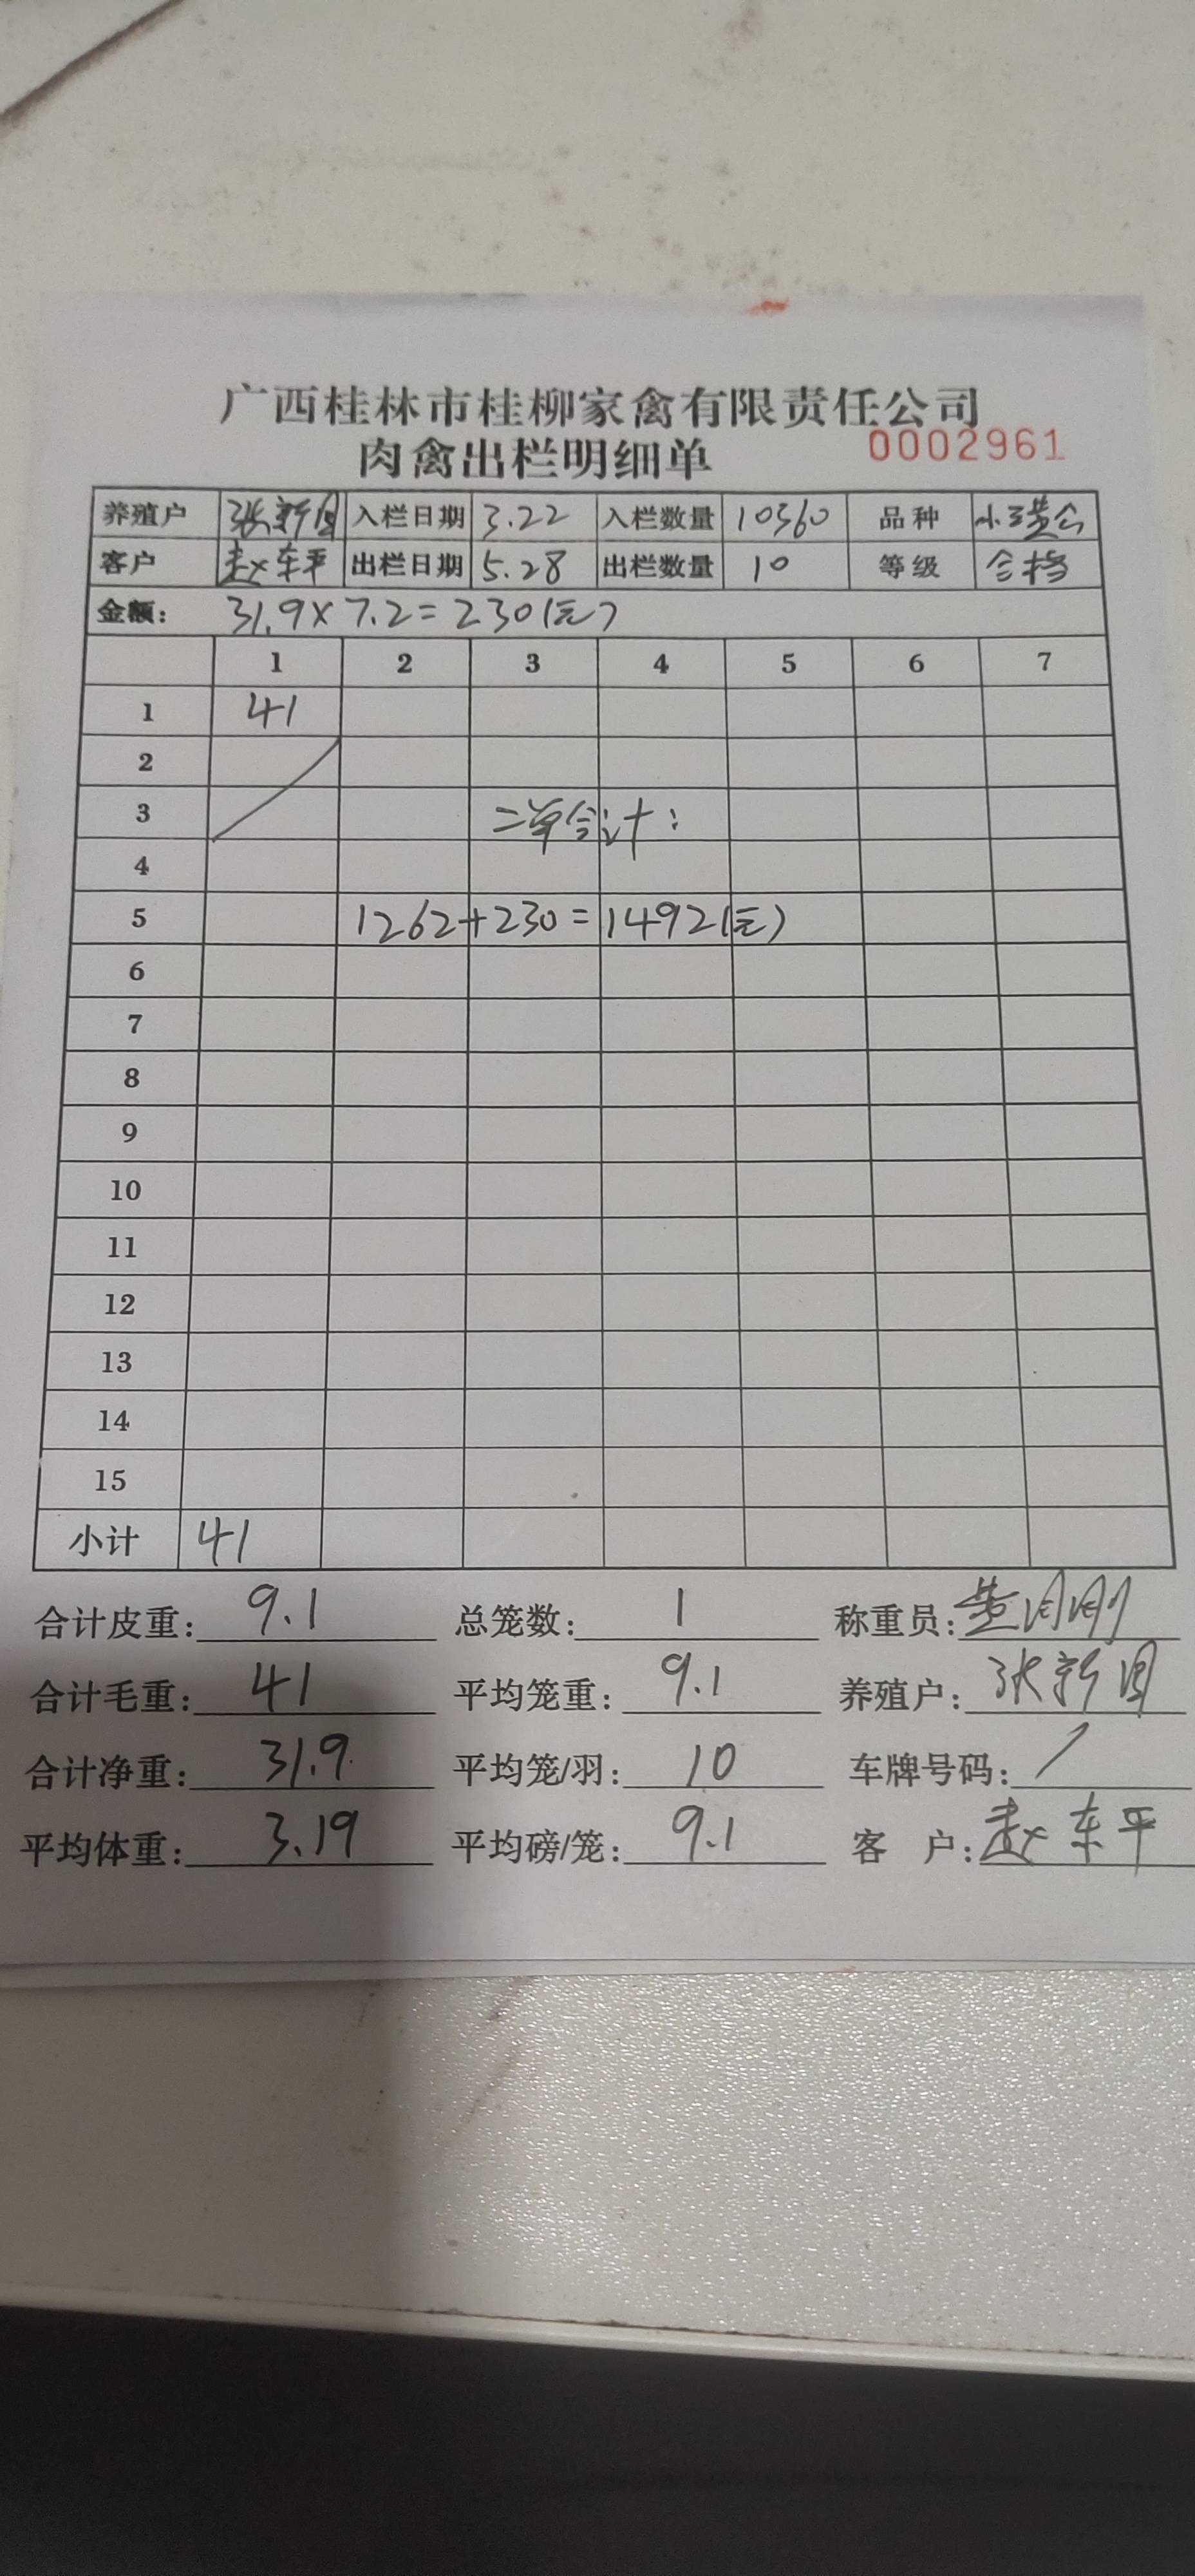 广西桂林市桂柳家禽有限责任公司
肉禽出栏明细单 0002961
养殖户 张新国 入栏日期 3.22 入栏数量 10360 品种
客户 赵东平 出栏日期 5.28 出栏数量 10 等级 合格
金额: 31.9×7.2=230(元)
1 2 3 4 5 6 7
1 41
2
3 二单合计:
4
5 1262+230=1492(元)
6
7
8
9
10
11
12
13
14
15
小计 41
合计皮重: 9.1 总笼数: 1 称重员:
合计毛重: 41 平均笼重: 9.1 养殖户: 张新国
合计净重: 31.9 平均笼/羽: 10 车牌号码: /
平均体重: 3.19 平均磅/笼: 9.1 客 户: 赵东平